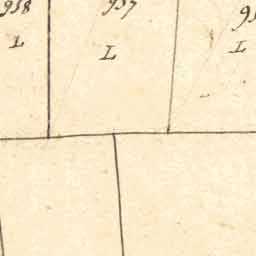 958
L
957
L
L